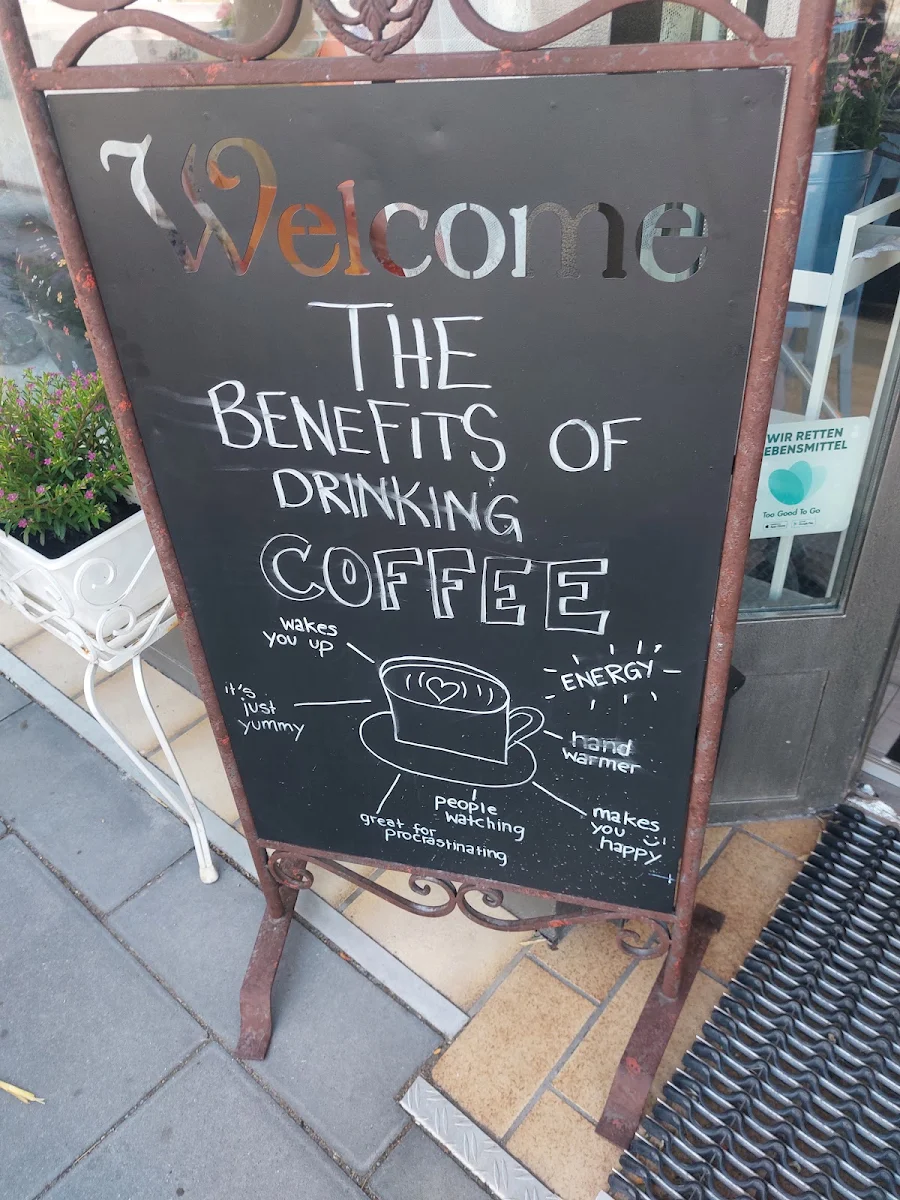 Welcome
THE
BENEFITS OF
DRINKING
COFFEE
wakes
you up
ENERGY
it's
just
yummy
hand
warmer
people
watching
great for
procrastinating
makes
you
happy
WIR RETTEN
EBENSMITTEL
Too Good To Go